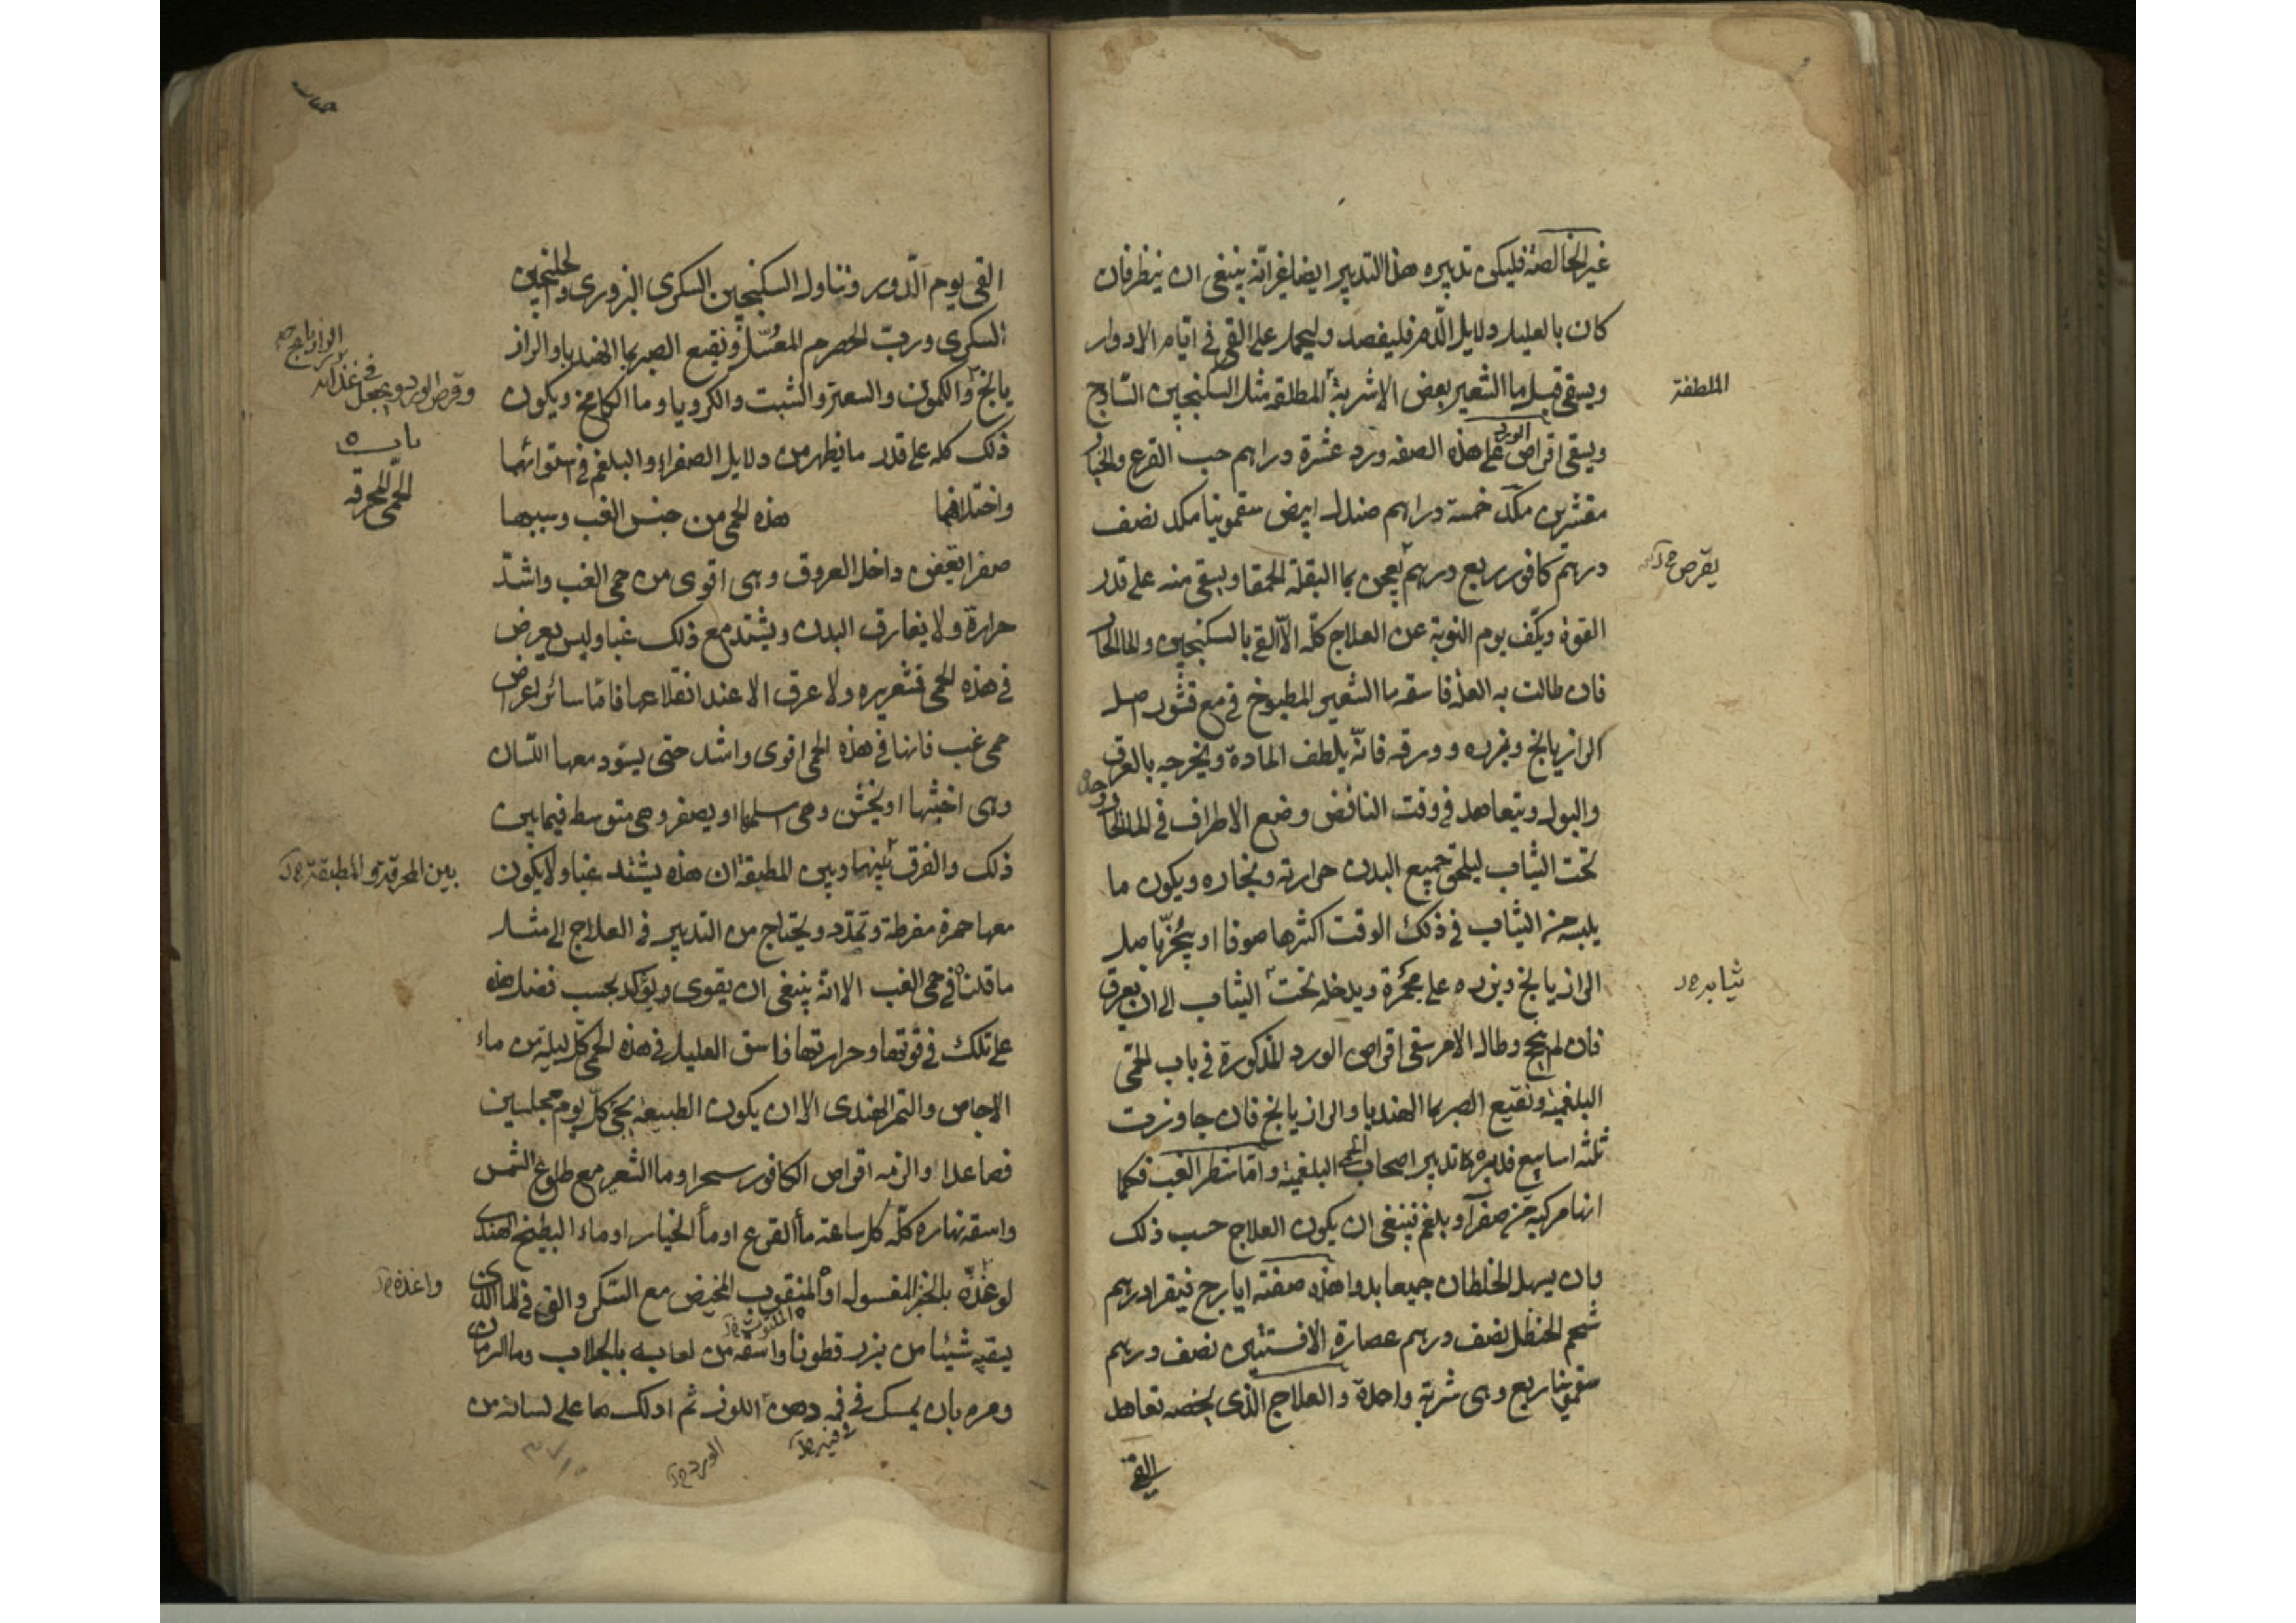 غير الخالصة فليكن تدبيره هذا التدبير ايضا غير انّه ينبغى ان ينظر فان
كان بالعليل دلايل الدم فليفصد وليحمل على القى فى ايام الادوار
ويسقى قبل ما الشعير بعض الاشربة المطلقه مثل السكنجبين الساذج
الملطفة
ويسقى اقراص الورد على هذه الصفه ورد عشرة دراهم حب القرع والخيار
مقشرين مكد خمسة دراهم صندل ابيض سقمونيا مكد نصف
درهم كافور ربع درهم يعجن بما البقلة الحمقا ويسقى منه على قدر
يقرص
القوة ويكف يوم النوبة عن العلاج كلّه الّا القى بالسكنجبين والما الحار
فان طالت به العلة فاسقه ما الشعير المطبوخ فى مع قشور اصل
الرازيانج وبزره وورقه فانّه يلطف المادة ويخرجه بالعرق
والبول ويتعاهد فى وقت النافض وضع الاطراف فى الما الحار
تحت الثياب ليلحق جميع البدن حرارته وبخاره ويكون ما
يلبسه من الثياب فى ذلك الوقت اكثرها صوفا او يبخر باصل
الرازيانج وبزره على مجمرة ويدخله تحت الثياب الى ان يعرق
ثيابه
فان لم ينجح وطال الامر سقى اقراص الورد المذكورة فى باب الحمّى
البلغمية ونقيع الصبر بما الهندبا والرازيانج فان جاوزت
ثلثه اسابيع فدبره تدبير اصحاب الحمى البلغمية وامّا شطر الغب فكما
انها مركبة من صفرآ وبلغم فينبغى ان يكون العلاج حسب ذلك
وان يسهل الخلطان جميعا بدوا هذه صفته ايارج فيقرا درهم
شحم الحنظل نصف درهم عصارة الافسنتين نصف درهم
سقمونيا ربع وهى شربة واحدة والعلاج الذى يخصه تعاهد
القى
القى يوم الدور وتناول السكنجبين السكرى البزورى والجلنجبين
السكرى وربّ الحصرم المعسّل ونقيع الصبر بما الهندبا والراز
يانج والكمون والسعتر والشبت والكرويا وما الكامخ ويكون
وقرص الورد ويجعل فى غذائه
ذلك كله على قدر ما يظهر من دلايل الصفراء والبلغم فى استوائهما
باب
الحمّى المحرقه
واختلافهما هذه الحمى من جنس الغب وسببها
صفرا تعفن داخل العروق وهى اقوى من حمى الغب واشدّ
حرارة ولا يفارق البدن ويشتد مع ذلك غبا وليس يعرض
فى هذه الحمى قشعريره ولا عرق الا عند انقلاعها فامّا سائر اعراض
حمى غب فانها فى هذه الحمى اقوى واشد حتى يسوّد معها اللسان
وهى اخبثها او يخشن وهى اسلمها او يصفر وهى متوسط فيما بين
ذلك والفرق بينهما وبين المطبقة ان هذه يشتد غبا ولا يكون
بين المحرقة والمطبقة
معها حمرة مفرطة وتمدّد ويحتاج من التدبير فى العلاج الى مثل
ما قلنا فى حمى الغب الا انّه ينبغى ان يقوى ويؤكد بحسب فضل هذه
على تلك فى قوتها وحرارتها فاسق العليل فى هذه الحمى كلّ ليلة من ماء
الاجاص والتمر الهندى الا ان يكون الطبيعة تجى كلّ يوم مجلسين
فصاعدا والزمه اقراص الكافور سحرا وما الشعير مع طلوع الشمس
واسقه نهاره كلّه كل ساعة مأ القرع او مأ الخيار او ماء البطيخ الهندى
وغذّه بالخبز المغسول او المنقوب المخيض مع السكر والقى فى الما الذى
واغذه
يسقيه شيئا من بزر قطونا واسقه من لعابه بالجلاب وما الرمان
ومره بان يمسك فى فمه دهن اللوز ثم ادلك بها على لسانه من
فى فيه
الورد